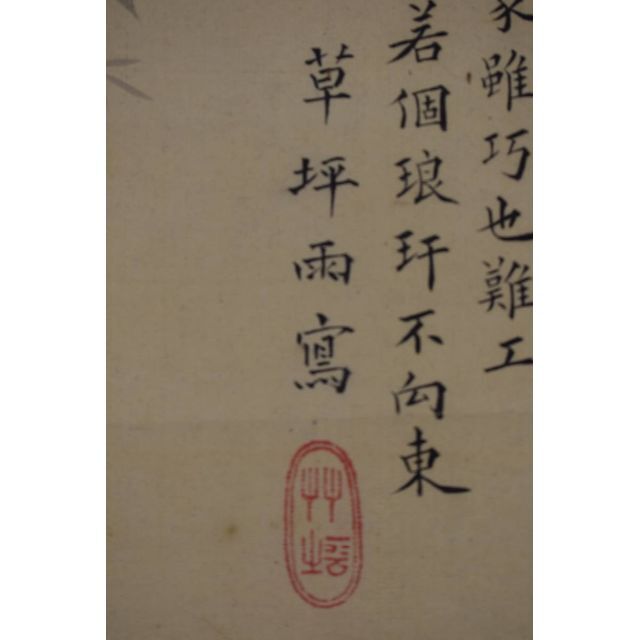 雖巧也難工
若個琅玕不向東
草坪雨寫
艸坪